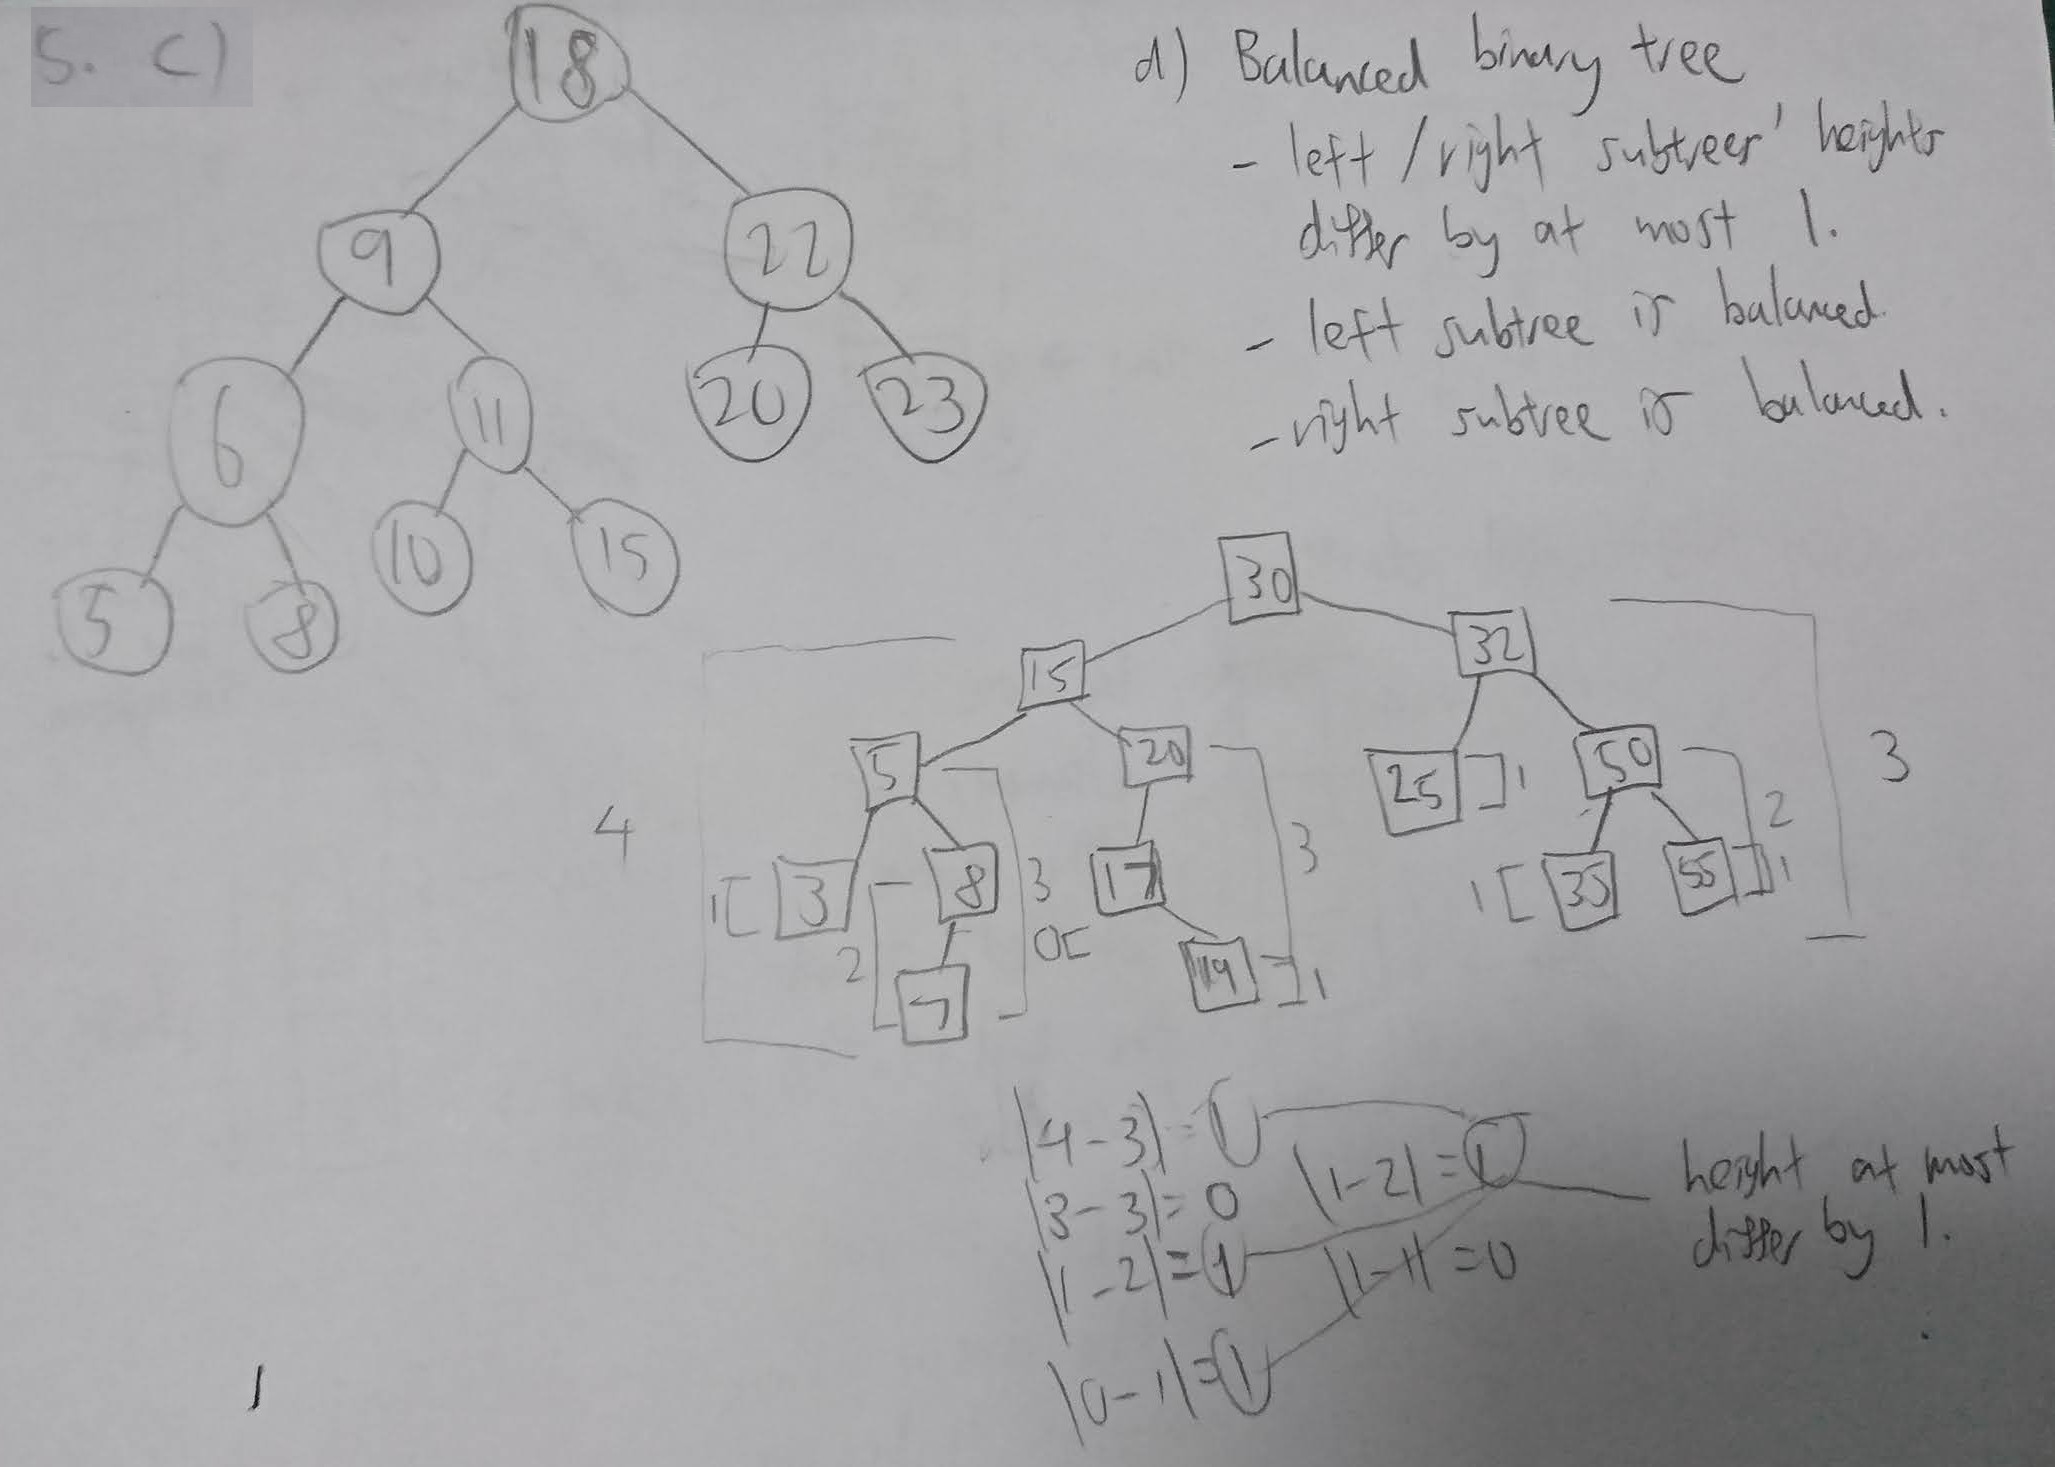 5. c)
18
9
22
6
11
20
23
5
8
10
15
d) Balanced binary tree
- left / right subtrees' heights
differ by at most 1.
- left subtree is balanced.
- right subtree is balanced.
30
15
32
5
20
25 1
50
4
3
2
3
1 3
8
3
17
3
1 35
55 1
2
0
7
19 1
|4-3| = 1
|1-2| = 1
|3-3| = 0
|1-2| = 1
|1-1| = 0
|0-1| = 1
height at most
differ by 1.